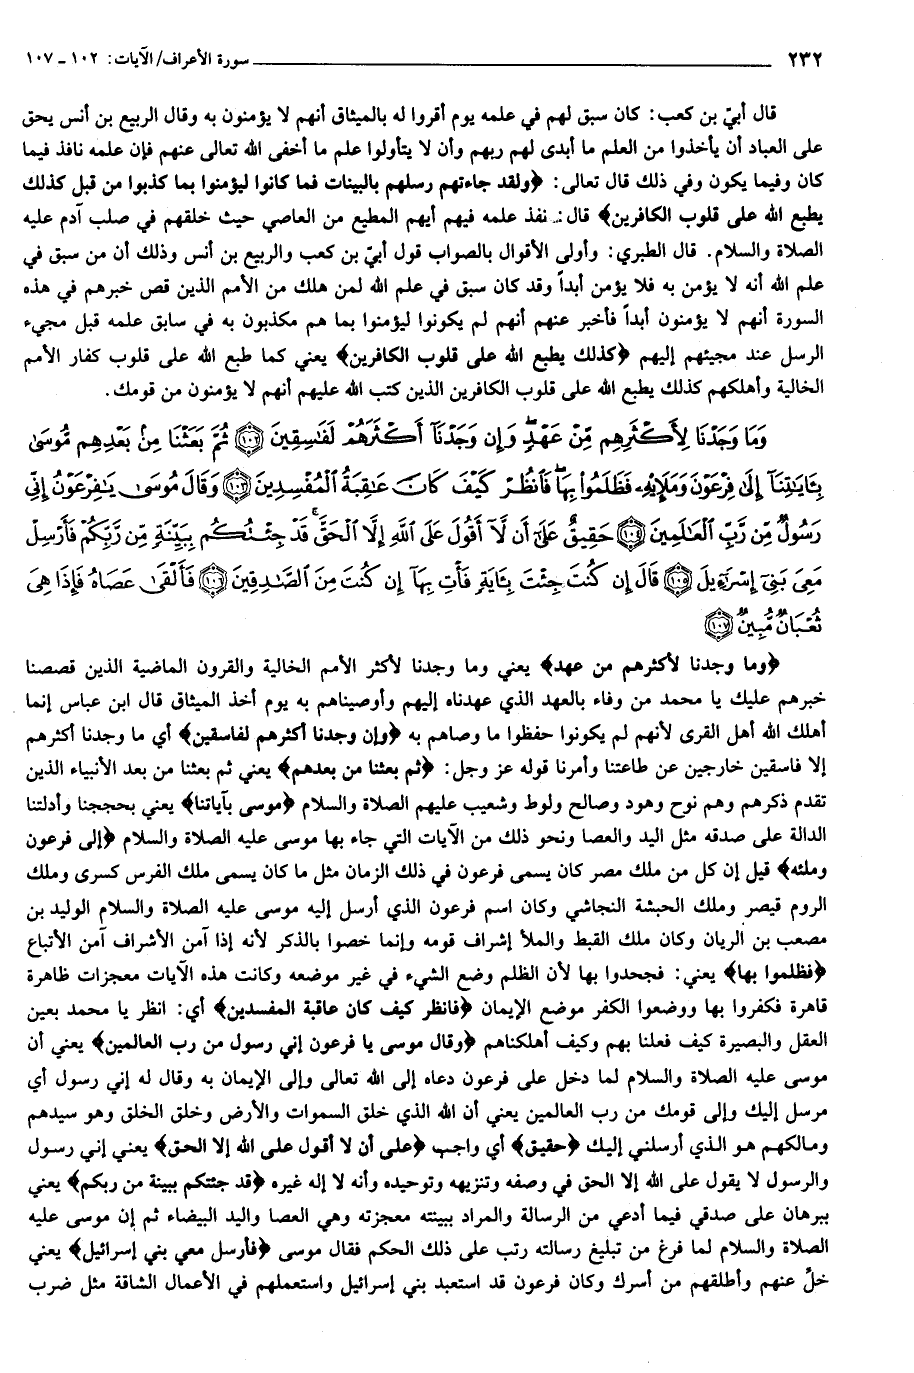 ٢٣٢ سورة الأعراف/ الآيات: ١٠٢ - ١٠٧
قال أبيّ بن كعب: كان سبق لهم في علمه يوم أقروا له بالميثاق أنهم لا يؤمنون به وقال الربيع بن أنس يحق
على العباد أن يأخذوا من العلم ما أبدى لهم ربهم وأن لا يتأولوا علم ما أخفى الله تعالى عنهم فإن علمه نافذ فيما
كان وفيما يكون وفي ذلك قال تعالى: ﴿ولقد جاءتهم رسلهم بالبينات فما كانوا ليؤمنوا بما كذبوا من قبل كذلك
يطبع الله على قلوب الكافرين﴾ قال: نفذ علمه فيهم أيهم المطيع من العاصي حيث خلقهم في صلب آدم عليه
الصلاة والسلام. قال الطبري: وأولى الأقوال بالصواب قول أبيّ بن كعب والربيع بن أنس وذلك أن من سبق في
علم الله أنه لا يؤمن به فلا يؤمن أبداً وقد كان سبق في علم الله لمن هلك من الأمم الذين قص خبرهم في هذه
السورة أنهم لا يؤمنون أبداً فأخبر عنهم أنهم لم يكونوا ليؤمنوا بما هم مكذبون به في سابق علمه قبل مجيء
الرسل عند مجيئهم إليهم ﴿كذلك يطبع الله على قلوب الكافرين﴾ يعني كما طبع الله على قلوب كفار الأمم
الخالية وأهلكهم كذلك يطبع الله على قلوب الكافرين الذين كتب الله عليهم أنهم لا يؤمنون من قومك.
وَمَا وَجَدْنَا لِأَكْثَرِهِم مِّنْ عَهْدٍ وَإِن وَجَدْنَآ أَكْثَرَهُمْ لَفَٰسِقِينَ ١٠٢ ثُمَّ بَعَثْنَا مِنۢ بَعْدِهِم مُّوسَىٰ
بِـَٔايَٰتِنَآ إِلَىٰ فِرْعَوْنَ وَمَلَإِيْهِۦ فَظَلَمُوا۟ بِهَا ۖ فَٱنظُرْ كَيْفَ كَانَ عَٰقِبَةُ ٱلْمُفْسِدِينَ ١٠٣ وَقَالَ مُوسَىٰ يَٰفِرْعَوْنُ إِنِّى
رَسُولٌ مِّن رَّبِّ ٱلْعَٰلَمِينَ ١٠٤ حَقِيقٌ عَلَىٰٓ أَن لَّآ أَقُولَ عَلَى ٱللَّهِ إِلَّا ٱلْحَقَّ ۚ قَدْ جِئْتُكُم بِبَيِّنَةٍ مِّن رَّبِّكُمْ فَأَرْسِلْ
مَعِىَ بَنِىٓ إِسْرَٰٓءِيلَ ١٠٥ قَالَ إِن كُنتَ جِئْتَ بِـَٔايَةٍ فَأْتِ بِهَآ إِن كُنتَ مِنَ ٱلصَّٰدِقِينَ ١٠٦ فَأَلْقَىٰ عَصَاهُ فَإِذَا هِىَ
ثُعْبَانٌ مُّبِينٌ ١٠٧
﴿وما وجدنا لأكثرهم من عهد﴾ يعني وما وجدنا لأكثر الأمم الخالية والقرون الماضية الذين قصصنا
خبرهم عليك يا محمد من وفاء بالعهد الذي عهدناه إليهم وأوصيناهم به يوم أخذ الميثاق قال ابن عباس إنما
أهلك الله أهل القرى لأنهم لم يكونوا حفظوا ما وصاهم به ﴿وإن وجدنا أكثرهم لفاسقين﴾ أي ما وجدنا أكثرهم
إلا فاسقين خارجين عن طاعتنا وأمرنا قوله عز وجل: ﴿ثم بعثنا من بعدهم﴾ يعني ثم بعثنا من بعد الأنبياء الذين
تقدم ذكرهم وهم نوح وهود وصالح ولوط وشعيب عليهم الصلاة والسلام ﴿موسى بآياتنا﴾ يعني بحججنا وأدلتنا
الدالة على صدقه مثل اليد والعصا ونحو ذلك من الآيات التي جاء بها موسى عليه الصلاة والسلام ﴿إلى فرعون
وملئه﴾ قيل إن كل من ملك مصر كان يسمى فرعون في ذلك الزمان مثل ما كان يسمى ملك الفرس كسرى وملك
الروم قيصر وملك الحبشة النجاشي وكان اسم فرعون الذي أرسل إليه موسى عليه الصلاة والسلام الوليد بن
مصعب بن الريان وكان ملك القبط والملأ إشراف قومه وإنما خصوا بالذكر لأنه إذا آمن الأشراف آمن الأتباع
﴿فظلموا بها﴾ يعني: فجحدوا بها لأن الظلم وضع الشيء في غير موضعه وكانت هذه الآيات معجزات ظاهرة
قاهرة فكفروا بها ووضعوا الكفر موضع الإيمان ﴿فانظر كيف كان عاقبة المفسدين﴾ أي: انظر يا محمد بعين
العقل والبصيرة كيف فعلنا بهم وكيف أهلكناهم ﴿وقال موسى يا فرعون إني رسول من رب العالمين﴾ يعني أن
موسى عليه الصلاة والسلام لما دخل على فرعون دعاه إلى الله تعالى وإلى الإيمان به وقال له إني رسول أي
مرسل إليك وإلى قومك من رب العالمين يعني أن الله الذي خلق السموات والأرض وخلق الخلق وهو سيدهم
ومالكهم هو الذي أرسلني إليك ﴿حقيق﴾ أي واجب ﴿على أن لا أقول على الله إلا الحق﴾ يعني إني رسول
والرسول لا يقول على الله إلا الحق في وصفه وتنزيهه وتوحيده وأنه لا إله غيره ﴿قد جئتكم ببينة من ربكم﴾ يعني
ببرهان على صدقي فيما أدعي من الرسالة والمراد ببينته معجزته وهي العصا واليد البيضاء ثم إن موسى عليه
الصلاة والسلام لما فرغ من تبليغ رسالته رتب على ذلك الحكم فقال موسى ﴿فأرسل معي بني إسرائيل﴾ يعني
خلِّ عنهم وأطلقهم من أسرك وكان فرعون قد استعبد بني إسرائيل واستعملهم في الأعمال الشاقة مثل ضرب